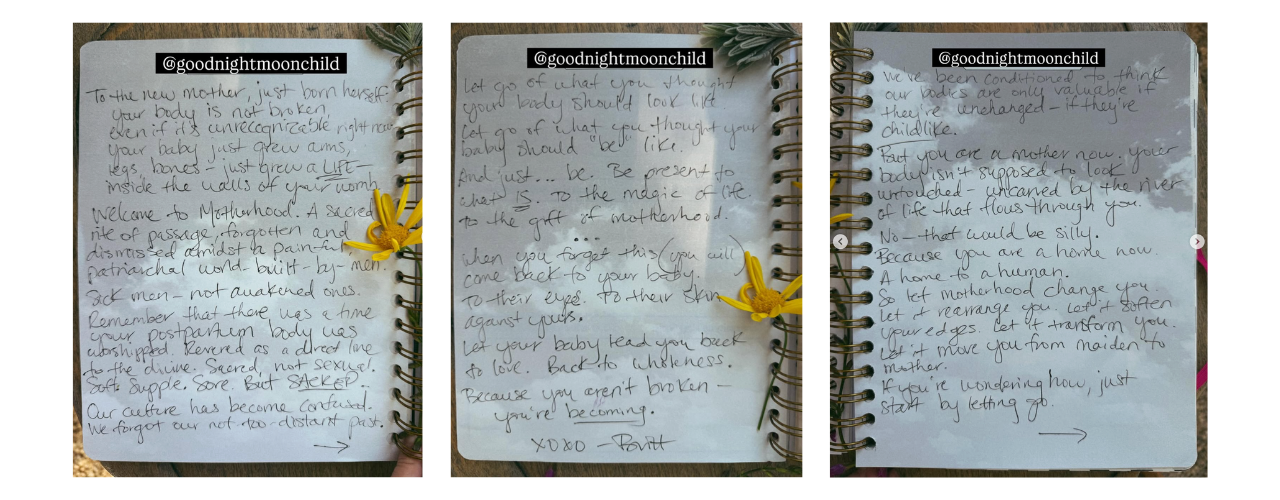 @goodnightmoonchild
To the new mother, just born herself:
your body is not broken,
even if it's unrecognizable right now
your baby just grew arms,
legs, bones - just grew a LIFE -
inside the walls of your womb.
Welcome to Motherhood. A sacred
rite of passage, forgotten and
dismissed amidst a pain-ful,
patriarchal world-built-by-men.
Sick men - not awakened ones.
Remember that there was a time
your postpartum body was
worshipped. Revered as a direct line
to the divine. Sacred, not sexual.
Soft. Supple. Sore. But SACRED.
Our culture has become confused.
We forgot our not-too-distant past.
@goodnightmoonchild
Let go of what you thought
your body should look like.
Let go of what you thought your
baby should "be" like.
And just... be. Be present to
what IS. To the magic of life
to the gift of motherhood.
...
When you forget this (you will)
come back to your baby.
To their eyes. To their skin
against yours.
Let your baby lead you back
to love. Back to wholeness.
Because you aren't broken -
you're becoming.
XOXO - Britt
@goodnightmoonchild
We've been conditioned to think
our bodies are only valuable if
they're unchanged - if they're
childlike.
But you are a mother now. Your
body isn't supposed to look
untouched - uncarved by the river
of life that flows through you.
No - that would be silly.
Because you are a home now.
A home to a human.
So let motherhood change you.
Let it rearrange you. Let it soften
your edges. Let it transform you.
Let it move you from maiden to
mother.
If you're wondering how, just
start by letting go.